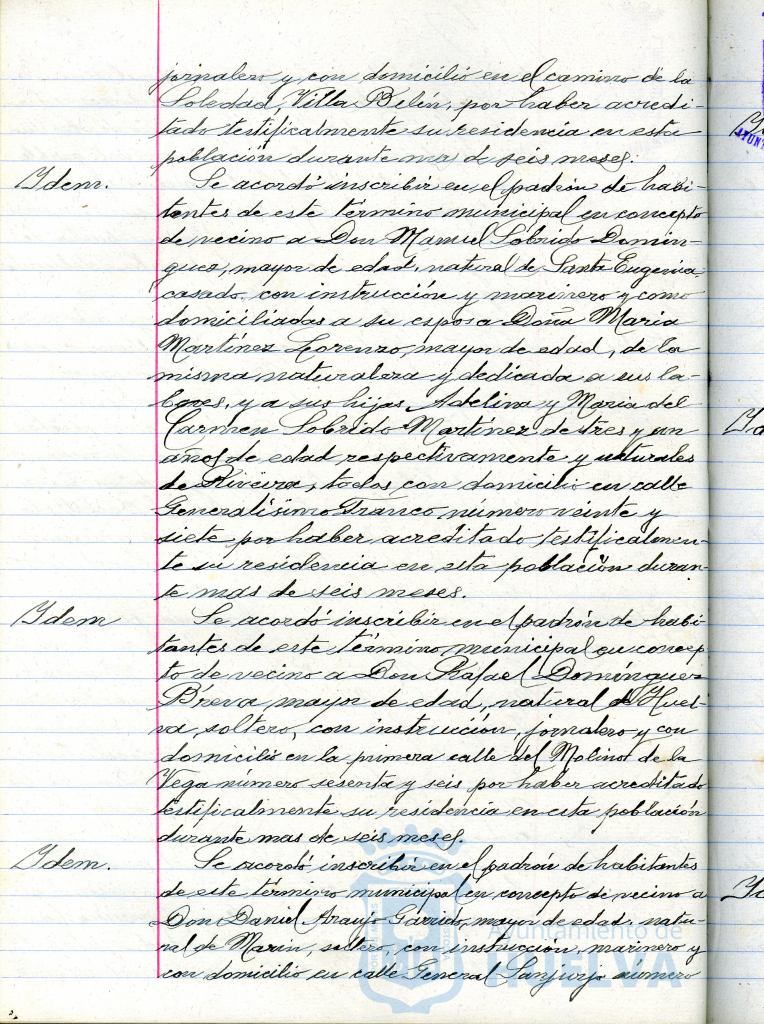 jornalero y con domicilio en el camino de la
Soledad, Villa Belén, por haber acredi-
tado testificalmente su residencia en esta
población durante mas de seis meses.
Idem.
Se acordó inscribir en el padrón de habi-
tantes de este término municipal en concepto
de vecino a Don Manuel Sobrido Domin-
guez, mayor de edad, natural de Santa Eugenia,
casado, con instrucción y marinero y como
domiciliadas a su esposa Doña Maria
Martínez Lorenzo, mayor de edad, de la
misma naturaleza y dedicada a sus la-
bores, y a sus hijas Adelina y Maria del
Carmen Sobrido Martinez de tres y un
años de edad respectivamente y naturales
de Riveira, todos con domicilio en calle
Generalísimo Franco número veinte y
siete por haber acreditado testificalmen-
te su residencia en esta población duran-
te mas de seis meses.
Idem
Se acordó inscribir en el padrón de habi-
tantes de este término municipal en concep
to de vecino a Don Rafael Domínguez
Breva mayor de edad, natural de Huel-
va, soltero, con instrucción, jornalero y con
domicilio en la primera calle del Molino de la
Vega número sesenta y seis por haber acreditado
testificalmente su residencia en esta población
durante mas de seis meses.
Idem.
Se acordó inscribir en el padrón de habitantes
de este término municipal en concepto de vecino a
Don Daniel Araujo Garrido, mayor de edad, natu-
ral de Marin, soltero, con instrucción, marinero y
con domicilio en calle General Sanjurjo número
Ayuntamiento de
HUELVA